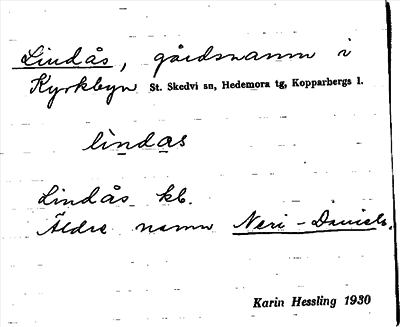 Lindås, gårdsnamn i
Kyrkbyn St. Skedvi sn, Hedemora tg, Kopparbergs l.
lìndas
Lindås kb.
Äldre namn Neri-Daniels.
Karin Hessling 1930